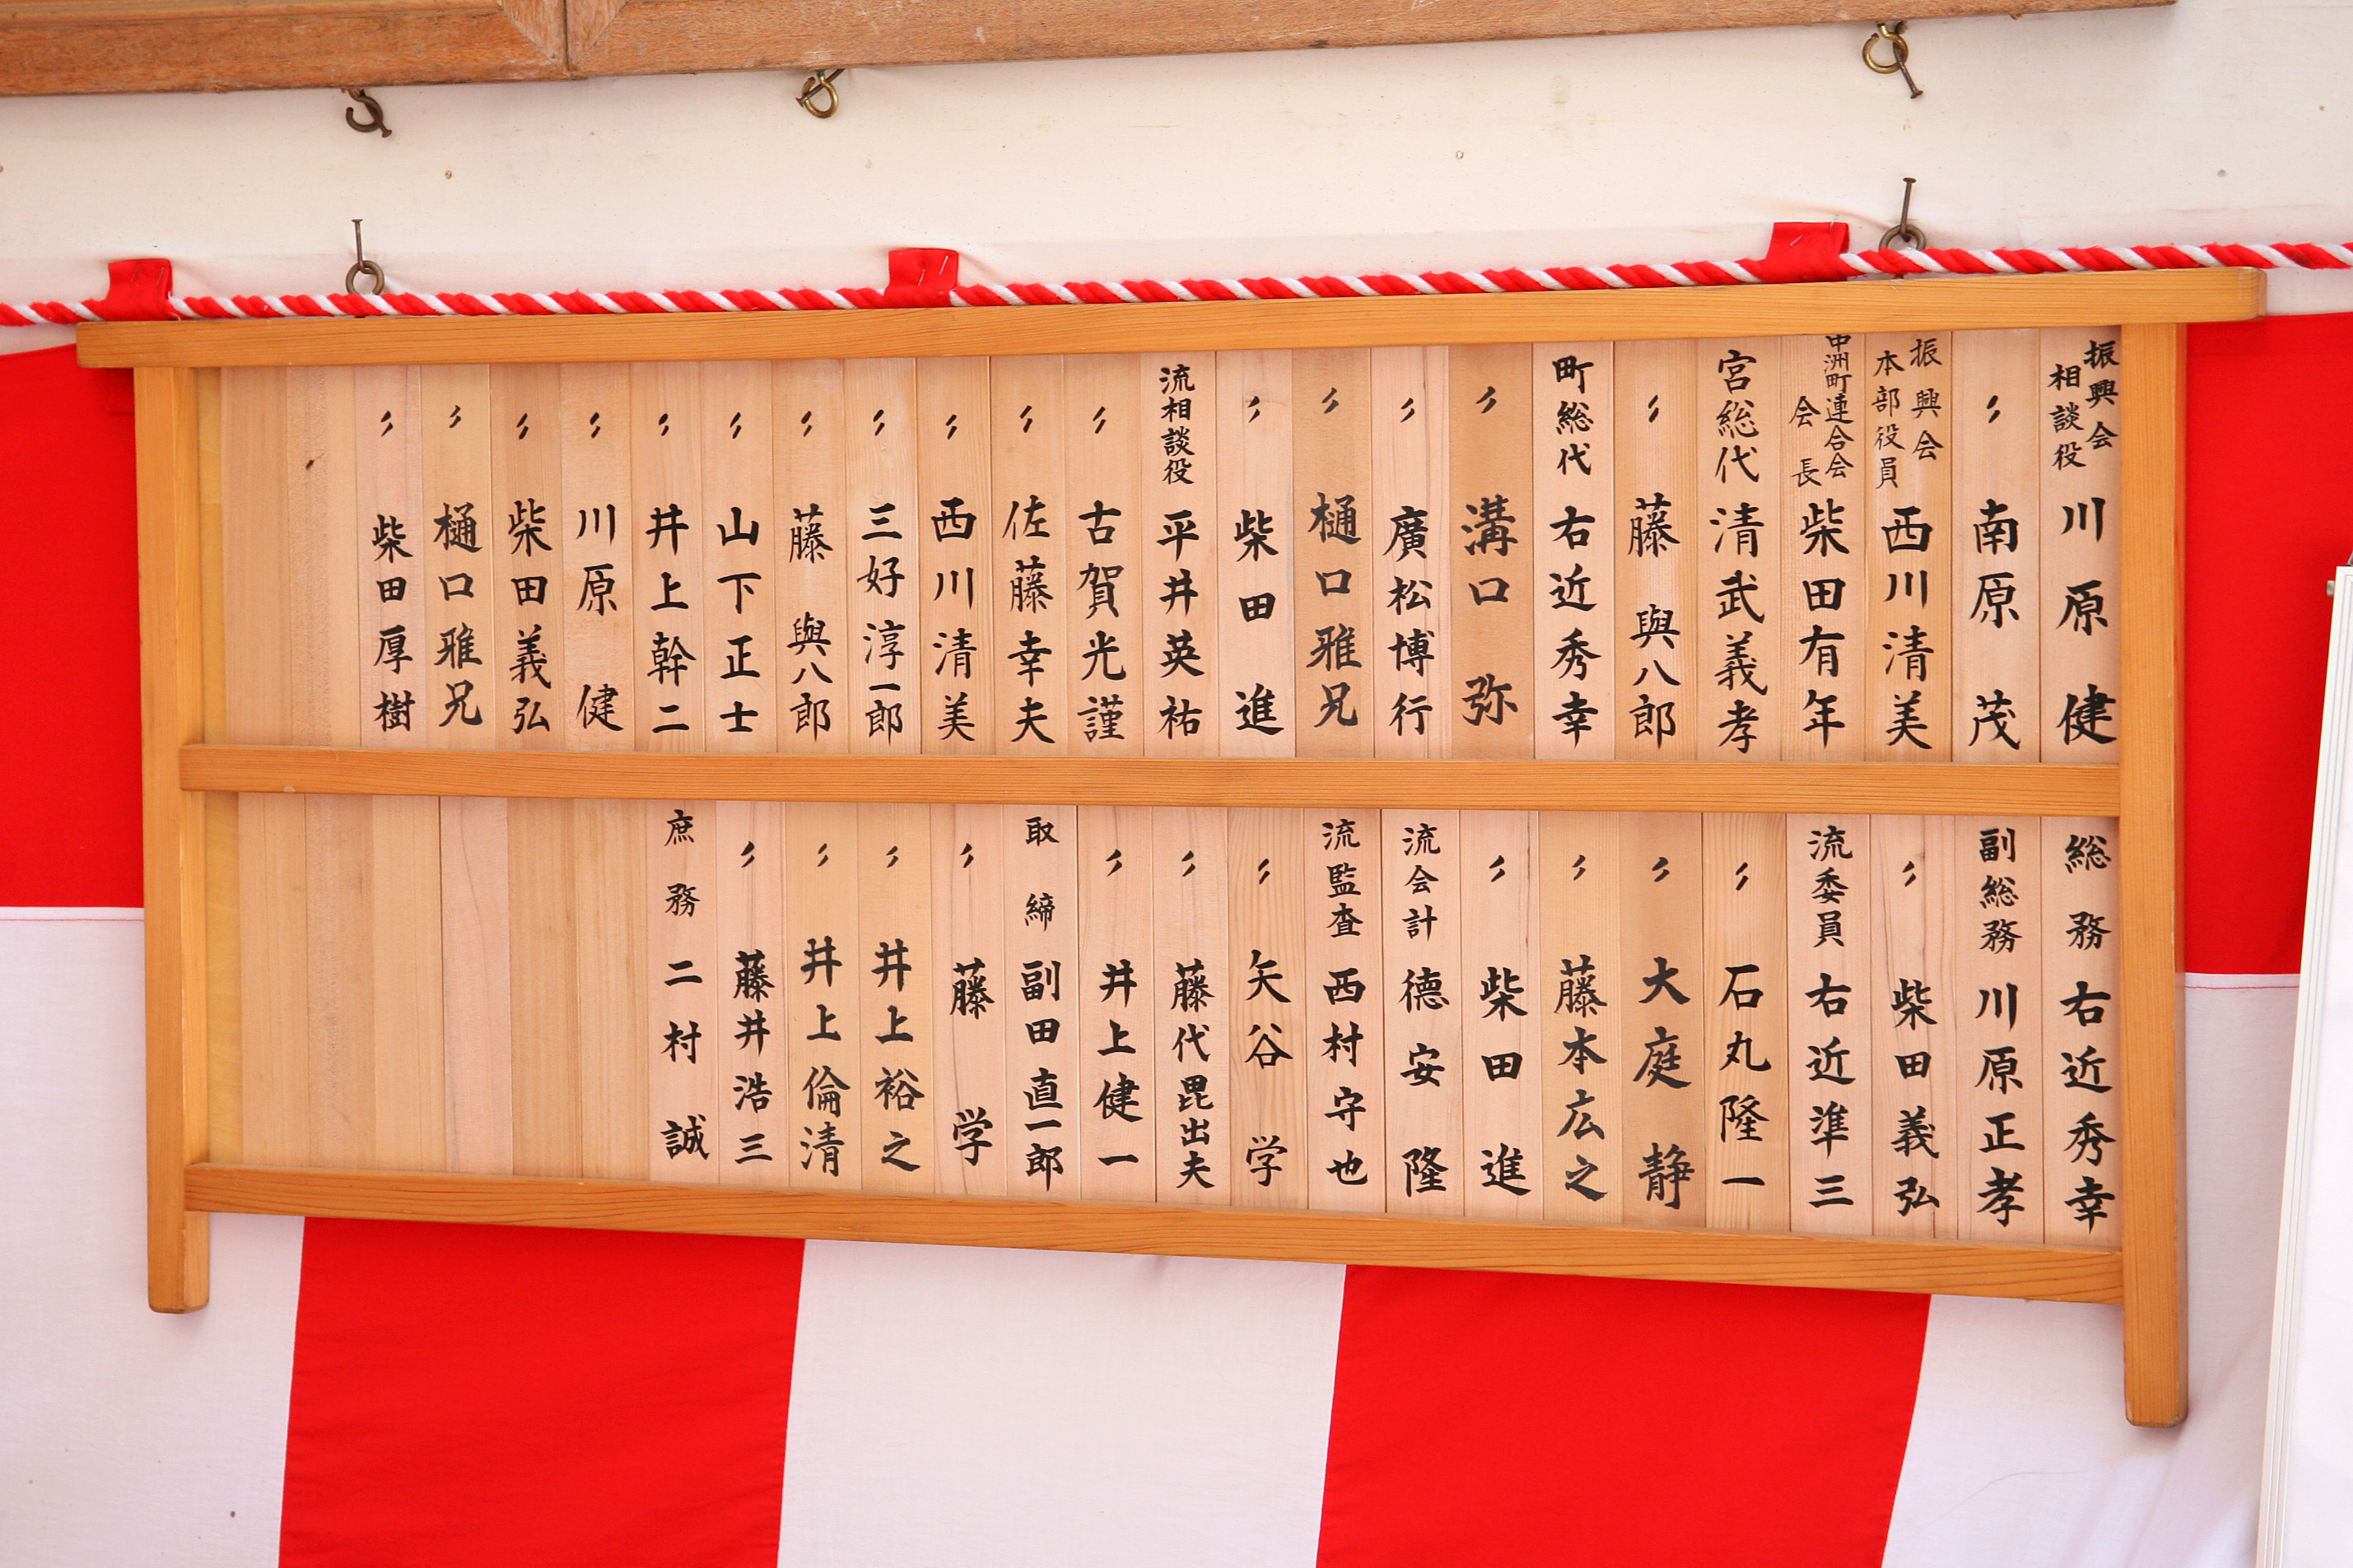 振興会相談役 川原健
〃 南原茂
振興会本部役員 西川清美
中洲町連合会会長 柴田有年
宮総代 清武義孝
〃 藤與八郎
町総代 右近秀幸
〃 溝口弥
〃 廣松博行
〃 樋口雅兄
〃 柴田進
流相談役 平井英祐
〃 古賀光謹
〃 佐藤幸夫
〃 西川清美
〃 三好淳一郎
〃 藤與八郎
〃 山下正士
〃 井上幹二
〃 川原健
〃 柴田義弘
〃 樋口雅兄
〃 柴田厚樹
総務 右近秀幸
副総務 川原正孝
〃 柴田義弘
流委員 右近準三
〃 石丸隆一
〃 大庭静
〃 藤本広之
〃 柴田進
流会計 德安隆
流監査 西村守也
〃 矢谷学
〃 藤代毘出夫
〃 井上健一
取締 副田直一郎
〃 藤学
〃 井上裕之
〃 井上倫清
〃 藤井浩三
庶務 二村誠